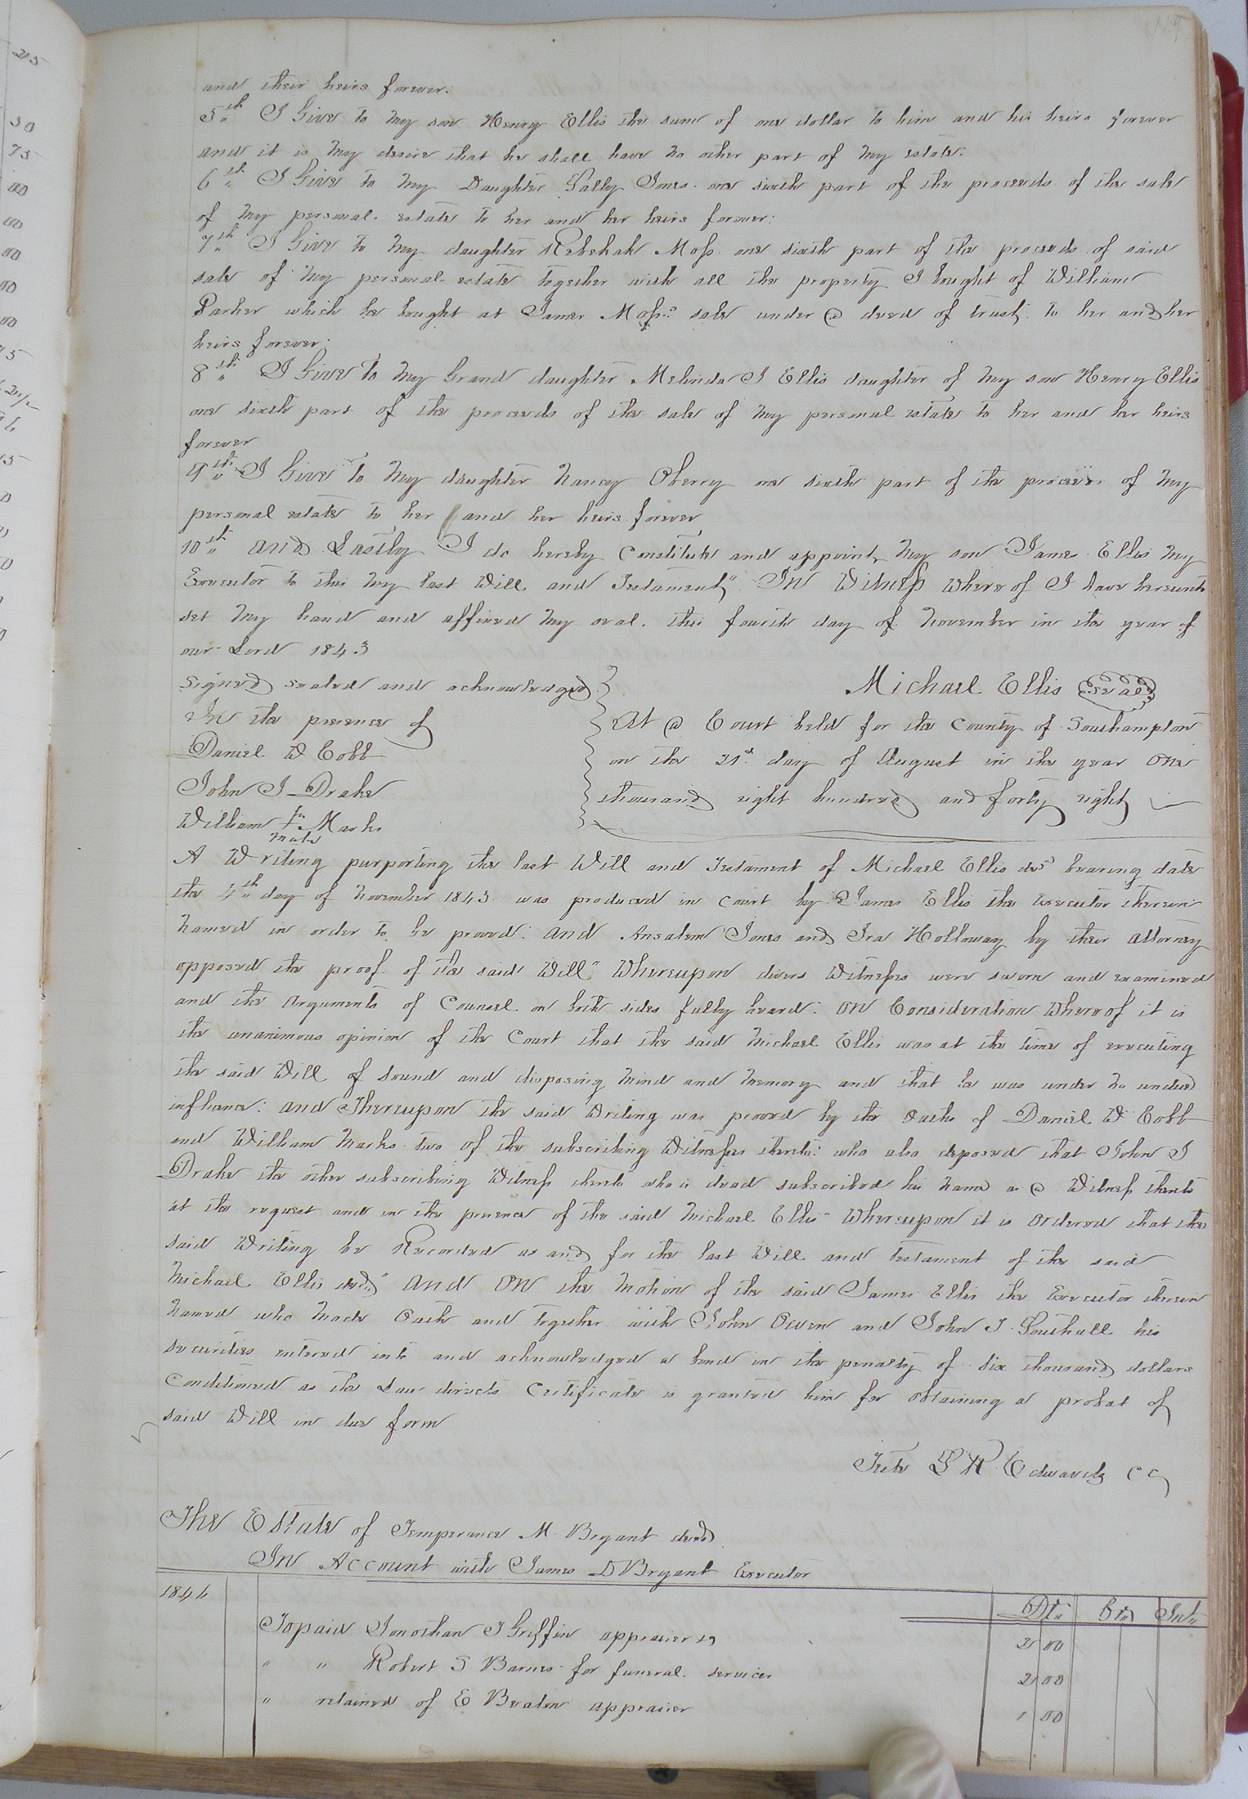 and their heirs forever.
5th I Give to my son Henry Ellis the sum of one dollar to him and his heirs forever
and it is my desire that he shall have no other part of my estate.
6th I Give to my Daughter Sally Jones one sixth part of the proceeds of the sale
of my personal estate to her and her heirs forever:
7th I Give to my daughter Rebekah Moss one sixth part of the proceeds of said
sale of my personal estate together with all the property I bought of William
Parker which he bought at James Moss's sale under a deed of trust. to her and her
heirs forever:
8th I Give to my Grand daughter Melinda J Ellis daughter of my son Henry Ellis
one sixth part of the proceeds of the sale of my personal estate to her and her heirs
forever
9th I Give to my daughter Nancy Oberry one sixth part of the proceeds of my
personal estate to her and her heirs forever
10th and Lastly I do hereby Constitute and appoint my son James Ellis my
Executor to this my last Will and Testament" In Witness whereof I have hereunto
set my hand and affixed my seal. this fourth day of November in the year of
our Lord 1843
Signed sealed and acknowledged
In the presence of
Daniel W Cobb
John J Drake
William + Marks
mark
Michael Ellis Seal
At a Court held for the County of Southampton
on the 21st day of August in the year One
thousand eight hundred and forty eight
A Writing purporting the last Will and Testament of Michael Ellis decd bearing date
the 4th day of November 1843 was produced in Court by James Ellis the executor therein
named in order to be proved: and Ansalem Jones and Ira Holloway by their attorney
opposed the proof of the said Will" Whereupon divers Witnesses were sworn and examined
and the Arguments of Council on both sides fully heard: On Consideration Whereof it is
the unanimous opinion of the Court that the said Michael Ellis was at the time of executing
the said Will of sound and disposing mind and memory and that he was under no undue
influence: and Thereupon the said Writing was proved by the Oaths of Daniel W Cobb
and William Marks two of the subscribing Witnesses thereto: who also deposed that John J
Drake the other subscribing Witness thereto who is dead subscribed his name as a Witness thereto
at the request and in the presence of the said Michael Ellis" Whereupon it is Ordered that the
said Writing be Recorded as and for the last Will and testament of the said
Michael Ellis decd" And On the motion of the said James Ellis the Executor therein
named who made Oath and together with John Owen and John T. Southall his
securities entered into and acknowledged a bond in the penalty of six thousand dollars
Conditioned as the Law directs Certificate is granted him for obtaining a probat of
said Will in due form
Teste L R Edwards CC
The Estate of Temperance M Bryant decd
In Account with James D Bryant Executor
1846 Dr. Cr. Int.
To paid Jonathan J Griffin appraiser 2 00
" " Robert S Barnes for funeral services 2 00
" retained of E Beaton appraiser 1 00